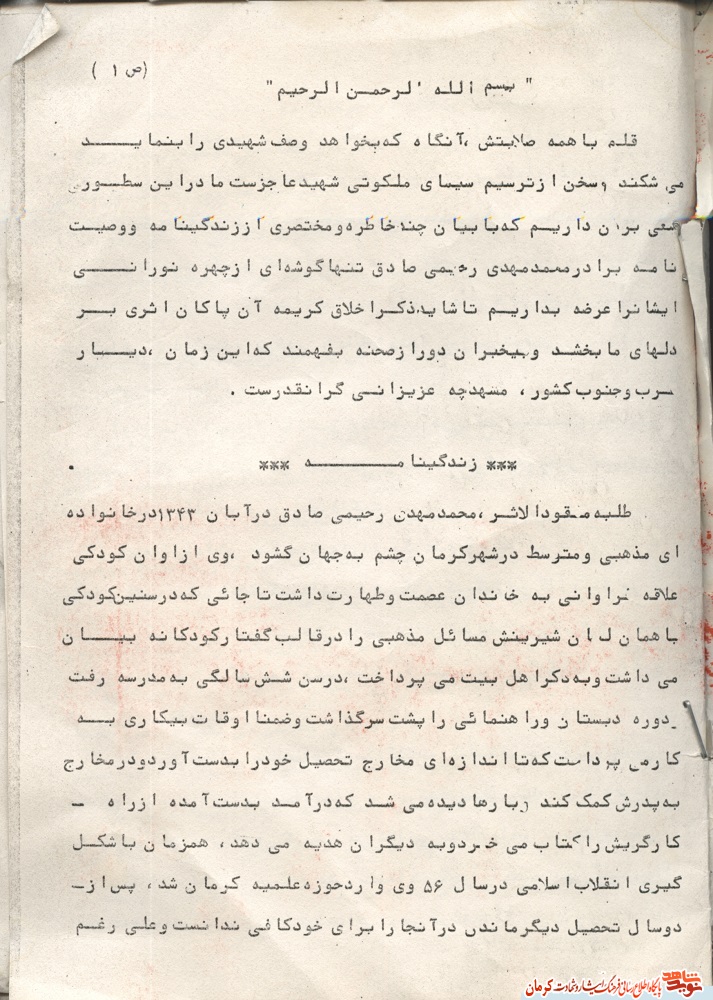 (ص ۱ )
" بسم الله الرحمن الرحیم "
قلم با همه صلابتش ،آنگاه که بخواهد وصف شهیدی را بنماید
می شکند وسخن ازترسیم سیمای ملکوتی شهیدعاجزست مادراین سطور
سعی برآن داریم که با بیان چندخاطره ومختصری اززندگینامه ووصیت
نامه برادرمحمدمهدی رحیمی صادق تنها گوشه ای ازچهره نورانی
ایشانرا عرضه بداریم تا شایدذکراخلاق کریمه آن پاکان اثری بر
دلهای ما بخشد وبیخبران دورازصحنه بفهمند که این زمان ،دیار
غرب وجنوب کشور ، مشهدچه عزیزانی گرانقدرست .
*** زندگینامه ***
طلبه مفقودالاثر ،محمدمهدی رحیمی صادق درآبان ۱۳۴۳درخانواده
ای مذهبی ومتوسط درشهرکرمان چشم به جهان گشود ،وی ازاوان کودکی
علاقه فراوانی به خاندان عصمت وطهارت داشت تا جائی که درسنین کودکی
با همان لسان شیرینش مسائل مذهبی را درقالب گفتارکودکانه بیان
می داشت وبه ذکراهل بیت می پرداخت ،درسن شش سالگی به مدرسه رفت
دوره دبستان وراهنمائی را پشت سرگذاشت وضمنا اوقات بیکاری به
کارمی پرداخت که تا اندازه ای مخارج تحصیل خودرا بدست آوردودرمخارج
به پدرش کمک کند وبارها دیده می شد که درآمد بدست آمده ازراه -
کارگریش را کتاب می خردوبه دیگران هدیه می دهد ، همزمان با شکل
گیری انقلاب اسلامی درسال ۵۶ وی واردحوزه علمیه کرمان شد ، پس از-
دوسال تحصیل دیگرماندن درآنجا را برای خودکافی ندانست وعلی رغم
نوید شاهد
پایگاه اطلاع رسانی فرهنگ ایثار و شهادت کرمان